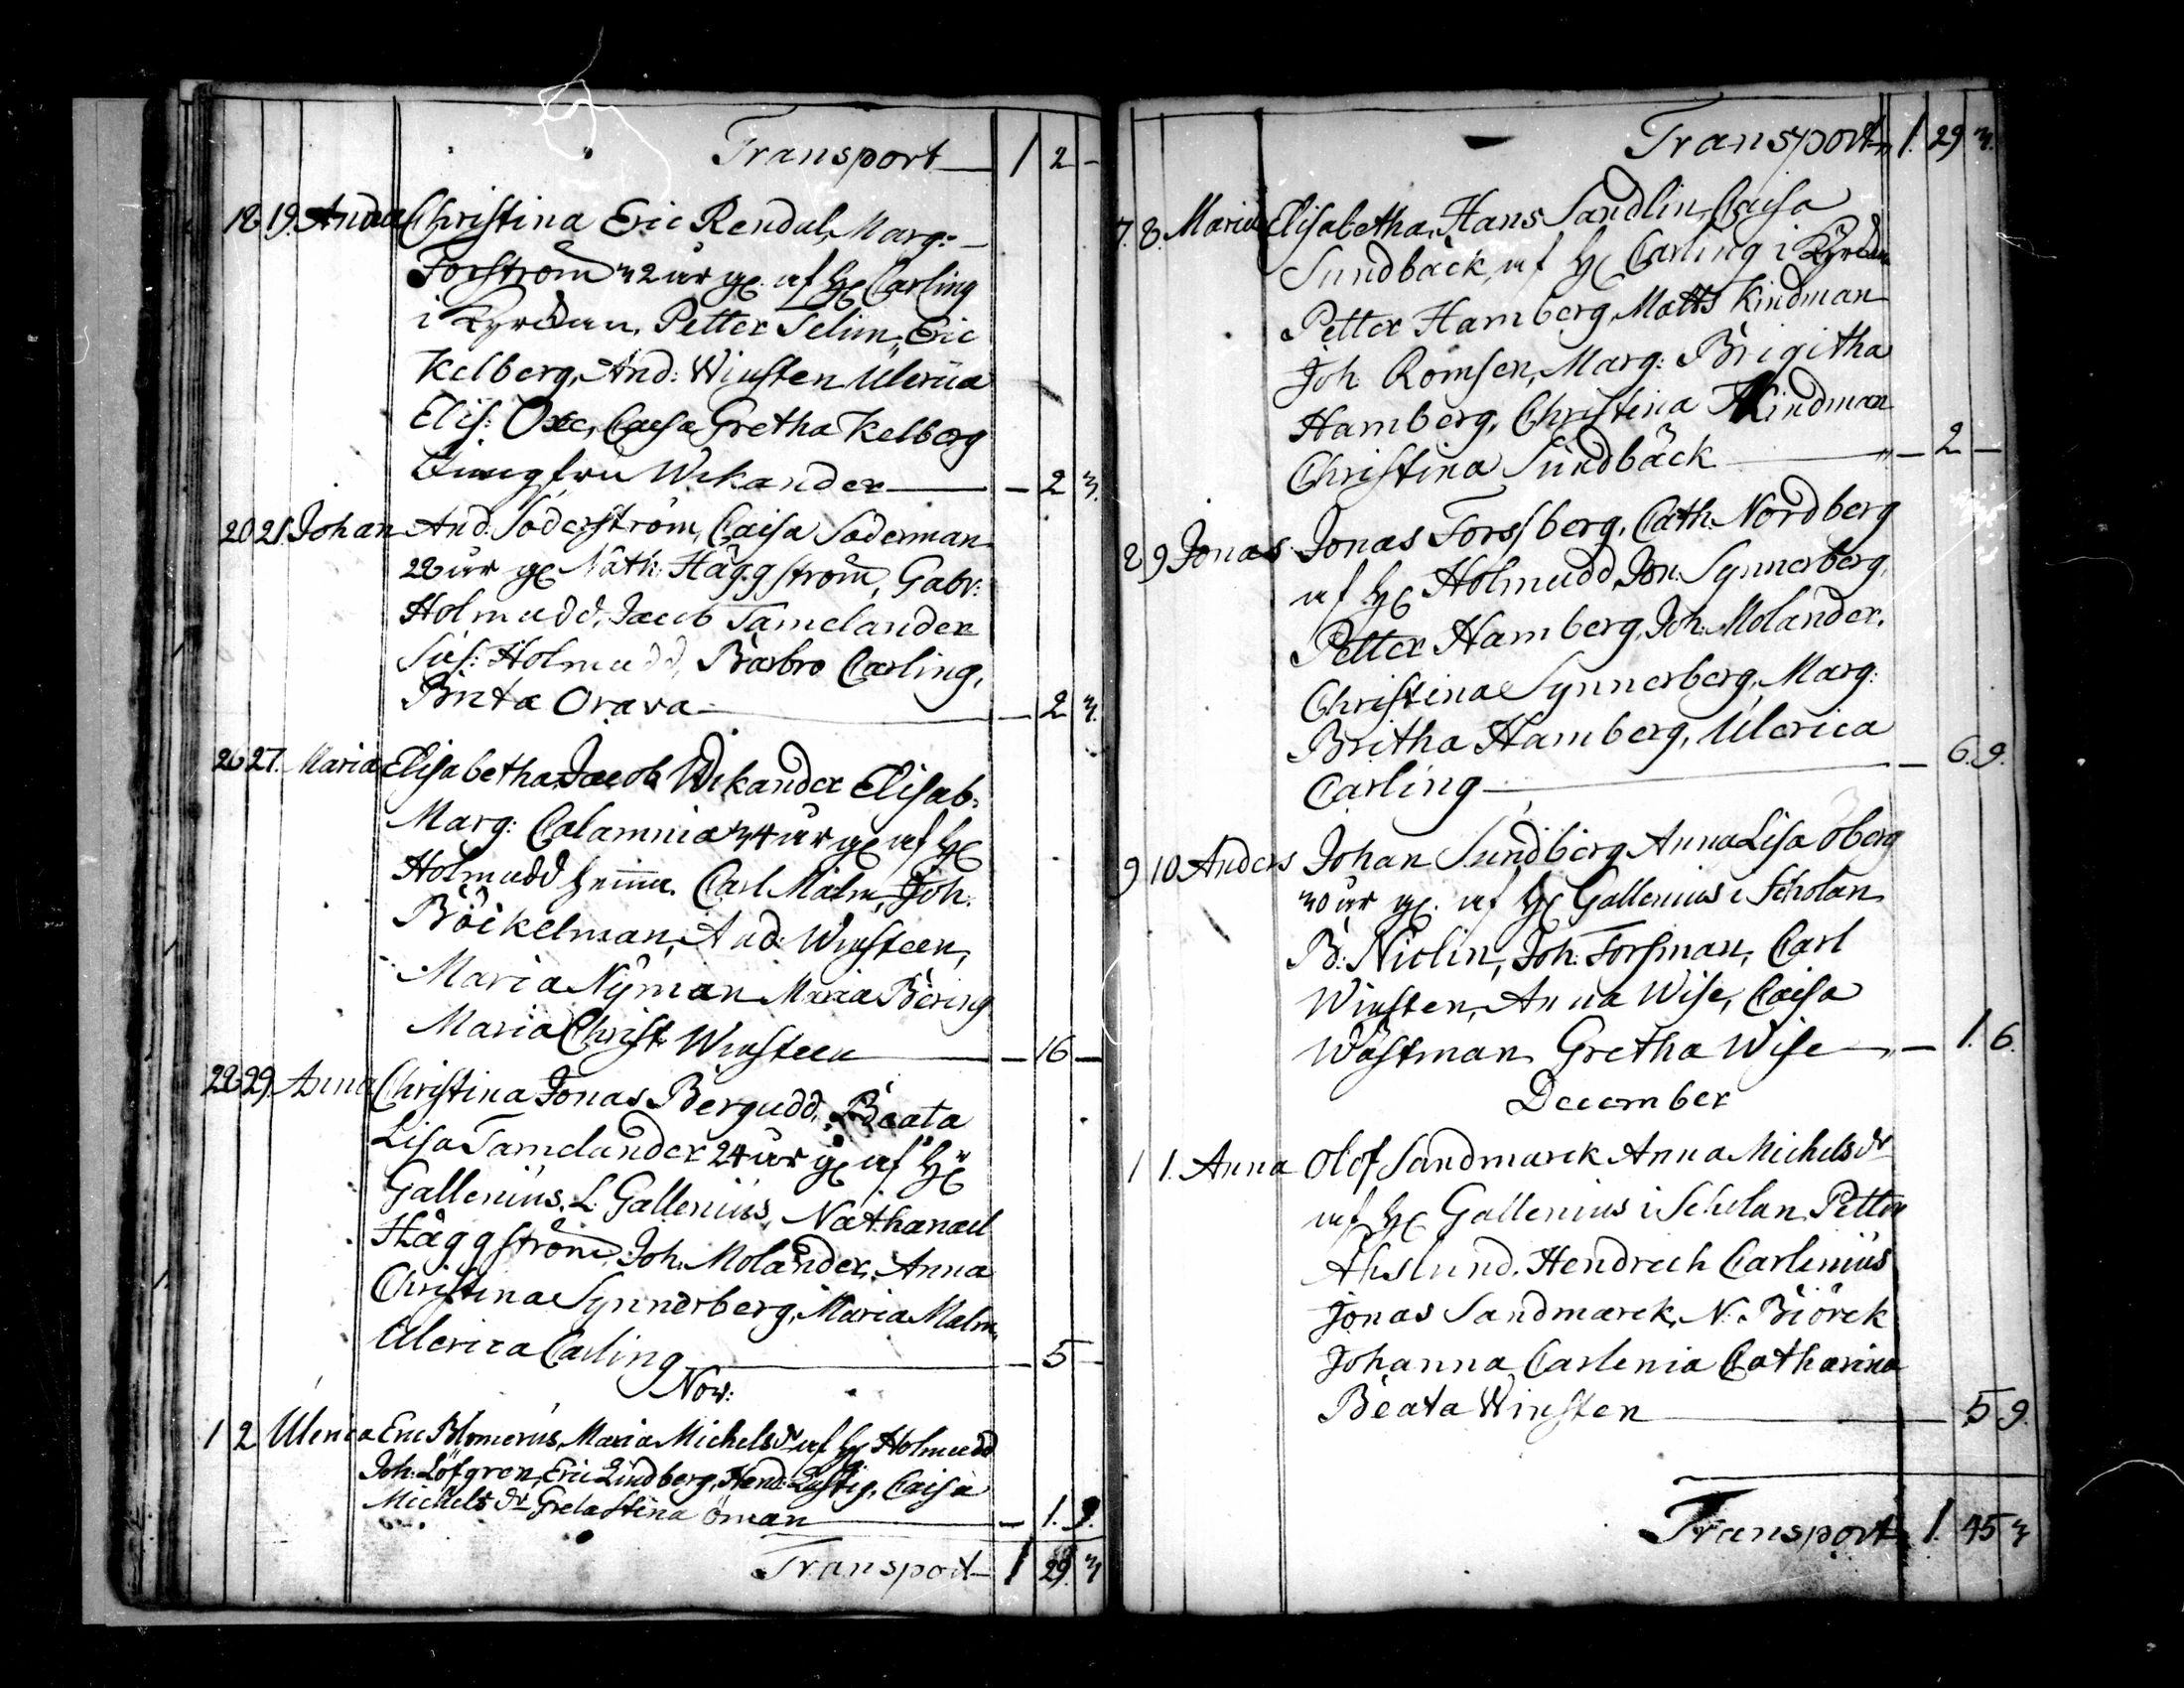 Transport 1 2 –
18 19. Anna Christina Eric Rendal, Marg:
Forström 32 år gl. af Hr Carling
i Kyrckan, Petter Selim, Eric
Kelberg, And: Winsten Ulrica
Elis: Oxe, Caisa Gretha Kelberg
Jungfru Wikander — – 2 3.
20 21. Johan And. Söderström, Caisa Söderman
28 år gl Nath: Häggström, Gabr:
Holmudd, Jacob Tamelander
Sus: Holmudd, Barbro Carling,
Brita Orava — – 2 3.
26 27. Maria Elisabetha Jacob Wikander Elisab:
Marg: Calamnia 34 år gl af Hr
Holmudd hemma. Carl Malm, Joh:
Böckelman, And: Winsteen,
Maria Nyman Maria Bering
Maria Christ: Winsteen — – 16 –
28 29. Anna Christina Jonas Bergudd, Beata
Lisa Tamelander 24 år gl af Hr
Gallenius. L: Gallenius, Nathanael
Häggström, Joh. Molander, Anna
Christina Synnerberg, Maria Malm
Ulerica Carling — – 5 –
Nov:
1 2 Ulrica Eric Blomerus, Maria Michelsdr af Hr Holmudd
Joh: Löfgren, Eric Lindberg, Hend: Lustig, Caisa
Michelsdr Greta Stina Öman — – 1. 9.
Transport 1 29. 3
Transport 1. 29 3.
7. 8. Maria Elisabetha, Hans Sandlin, Caisa
Sundbäck, af Hr Carling i Kyrckan
Petter Hamberg, Matts Kindman
Joh Romsen, Marg: Brigitha
Hamberg, Christina Kindman
Christina Sundbäck — – 2 –
8 9 Jonas Jonas Forssberg, Cath: Nordberg
af Hr Holmudd, Jon: Synnerberg,
Petter Hamberg, Joh: Molander,
Christina Synnerberg, Marg:
Britha Hamberg, Ulerica
Carling — – 6. 9.
9 10 Anders Johan Sundberg Anna Lisa Öberg
30 år gl. af Hr Gallenius i Scholan
B: Niclin, Joh: Forsman, Carl
Winsten, Anna Wise, Caisa
Wästman Gretha Wise — – 1. 6.
December
1 1. Anna Olof Sandmarck Anna Michelsdr
af Hr Gallenius i Scholan Petter
Ahslund. Hendrich Carlenius
Jonas Sandmarck, N: Biörck
Johanna Carlenia Catharina
Beata Winsten — 5 9.
Transport 1. 45 3